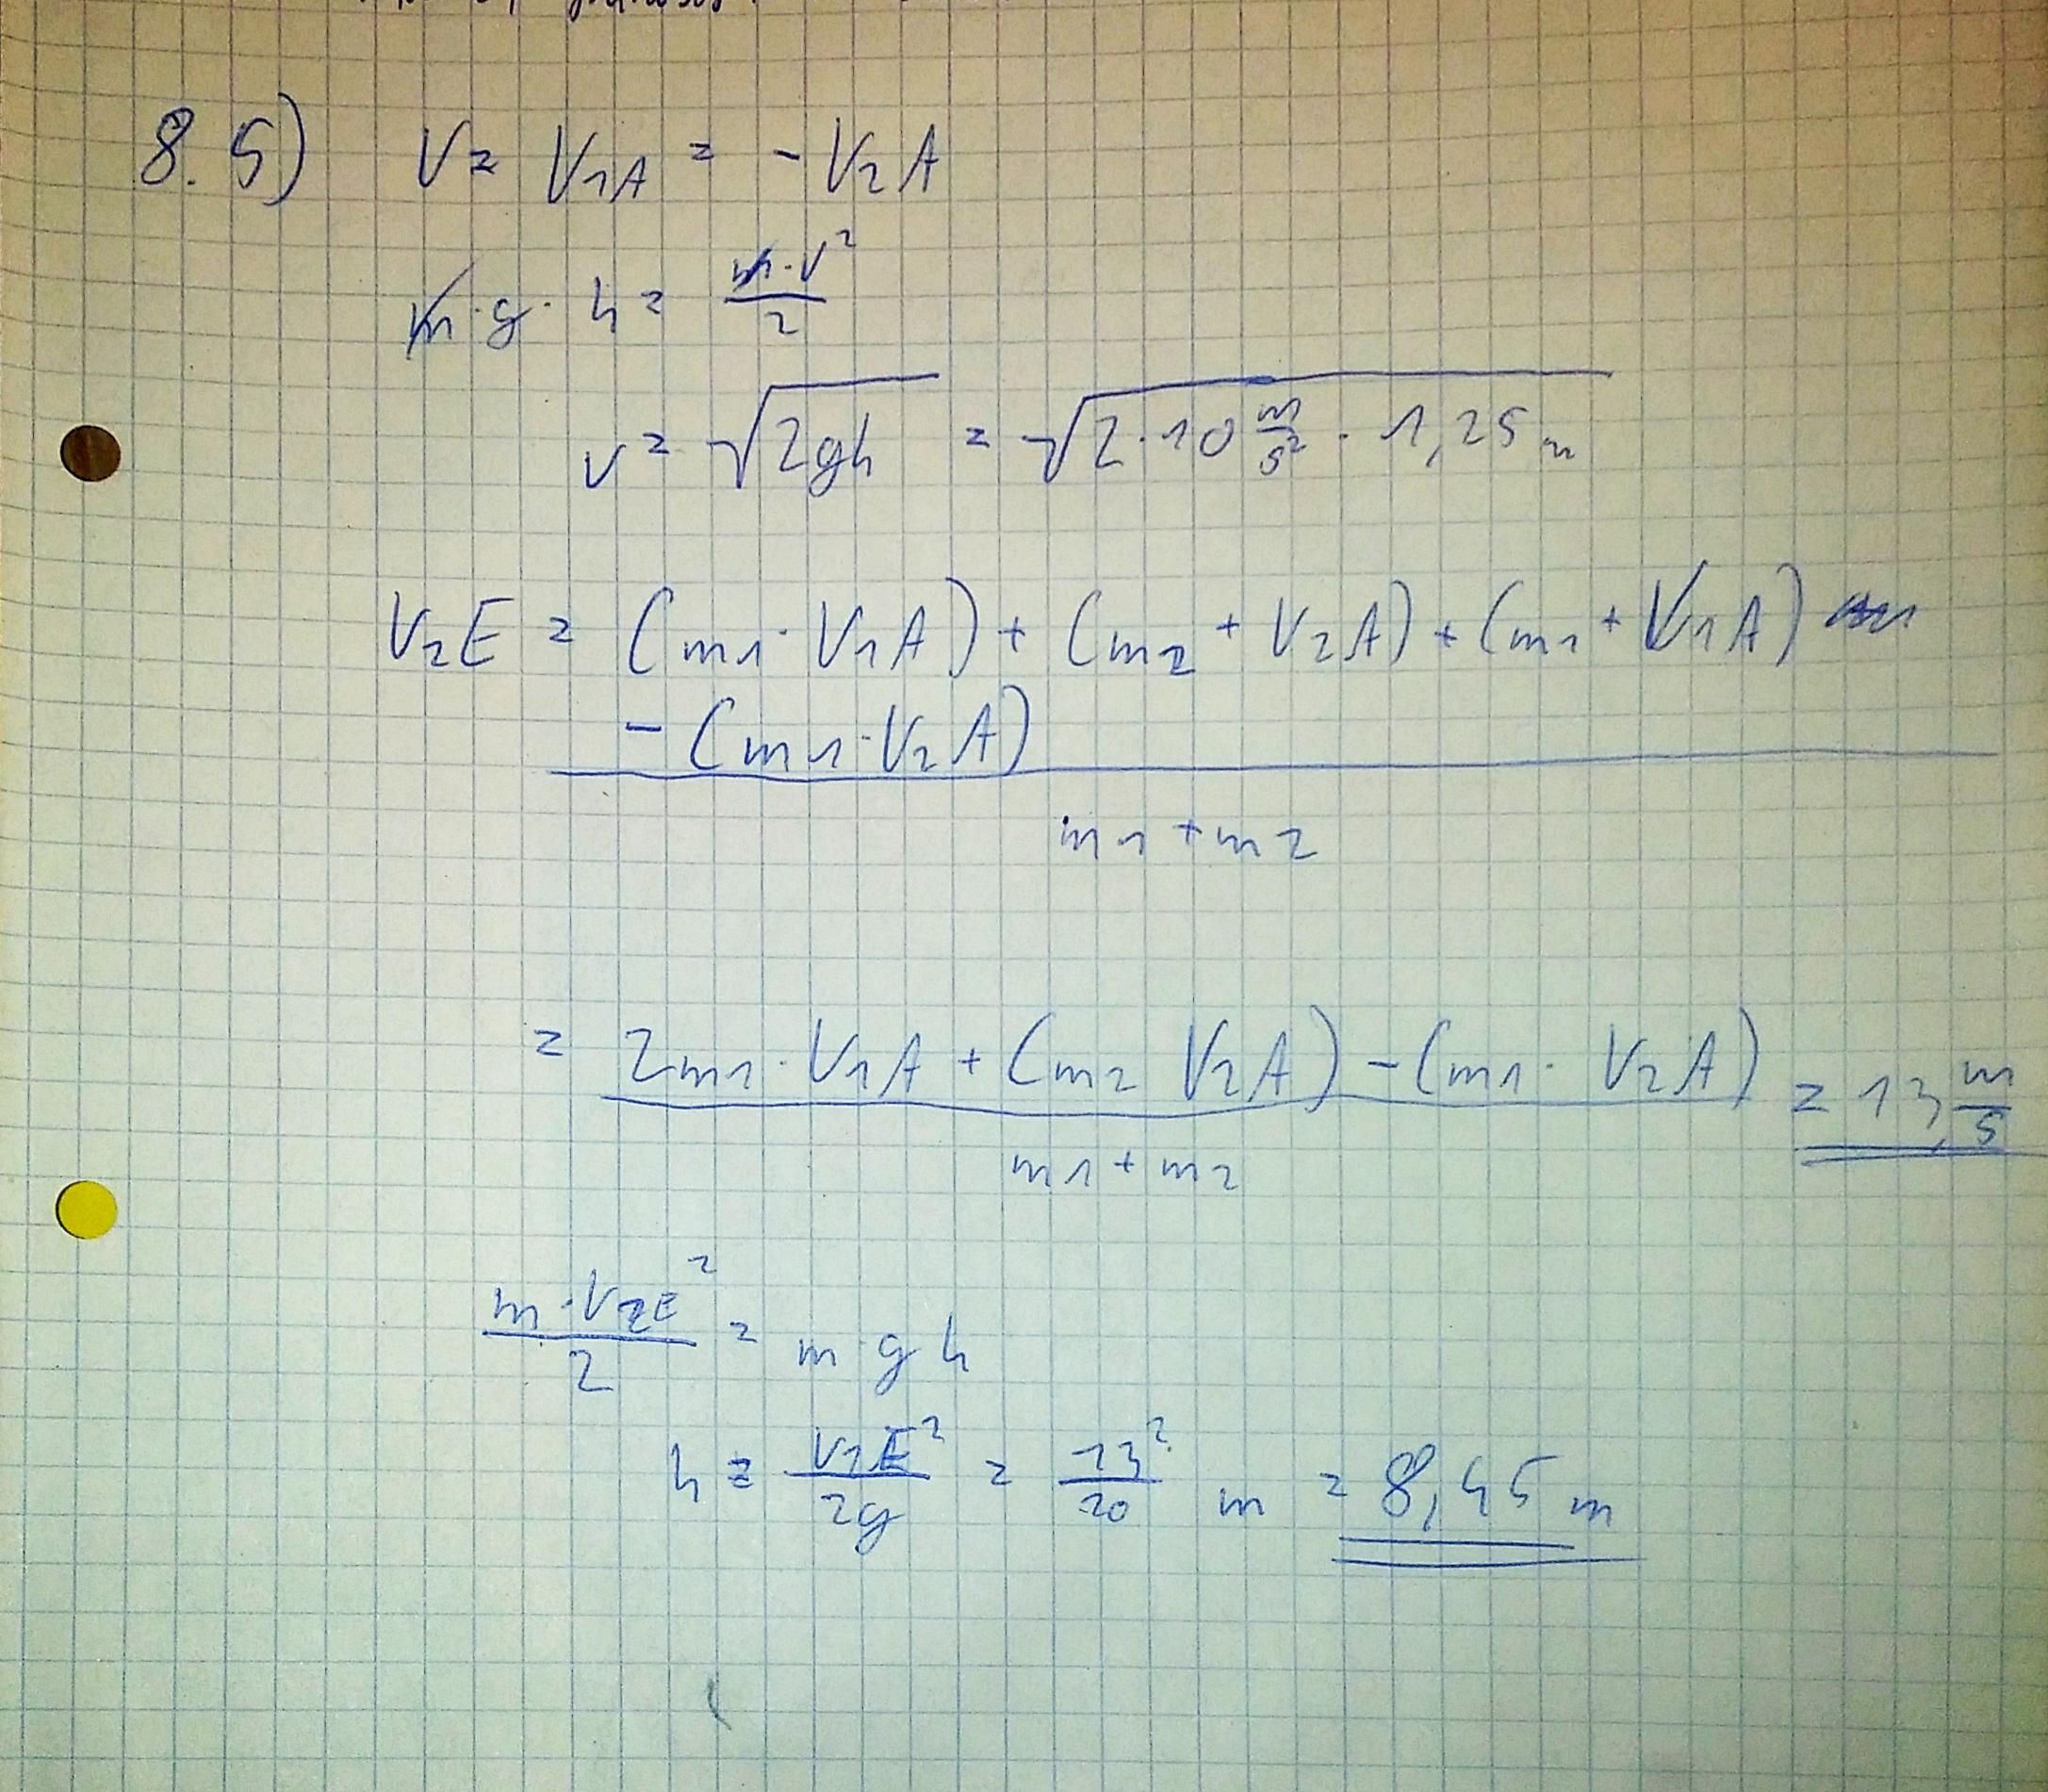 8.5) V = V1A = -V2A
m · g · h = m · v² / 2
v = √2gh = √2 · 10 m/s² · 1,25 m
V2E = (m1 · V1A) + (m2 + V2A) + (m1 + V1A)
- (m1 · V2A)
m1 + m2
= 2m1 · V1A + (m2 V2A) - (m1 · V2A) = 13, m/s
m1 + m2
m · V2E² / 2 = m g h
h = V1E² / 2g = 13² / 20 m = 8,45 m